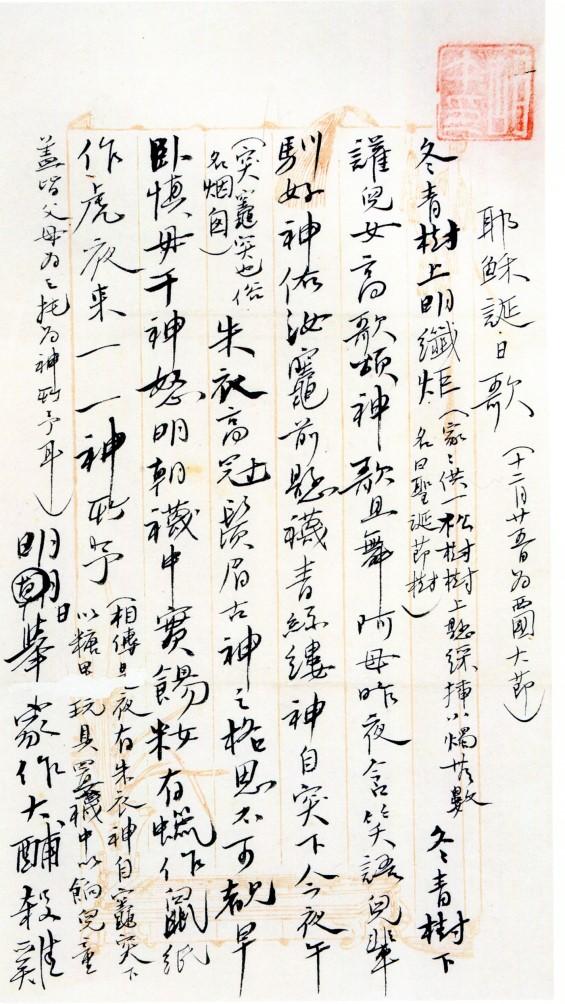 耶穌誕日歌（十二月廿五日為西國大節）
冬青樹上明纖炬（家〻供一松樹樹上懸綵插小燭無數
名曰聖誕節樹）冬青樹下
讙兒女高歌頌神歌且舞阿母昨夜含笑語兒輩
馴好神佑汝竈前懸襪青絲縷神自突下今夜午
（突竈突也俗
名烟囱）朱衣高冠鬚眉古神之格思不可覩早
臥慎毋干神怒明朝襪中實餳粔有蠟作鼠紙
作虎夜來一一神所予（相傳是夜有朱衣神自竈突下
以糖果玩具置襪中以餉兒童
蓋皆父母為之托為神所予耳）明日舉家作大酺殺雞